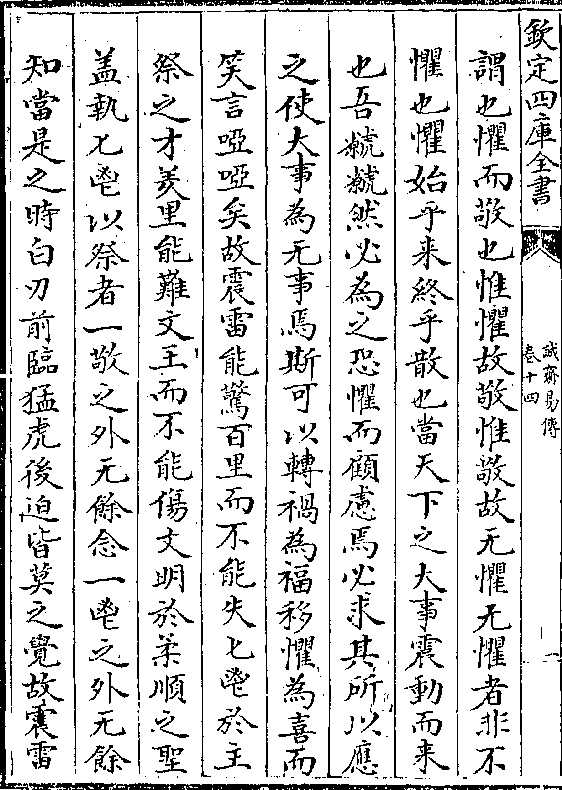 欽定四庫全書
誠齋易傳
卷十四
一
謂也懼而敬也惟懼故敬惟敬故无懼无懼者非不
懼也懼始乎来終乎散也當天下之大事震動而来
也吾虩虩然必為之恐懼而顧慮焉必求其所以應
之使大事為无事焉斯可以轉禍為福移懼為喜而
笑言啞啞矣故震雷能驚百里而不能失匕鬯於主
祭之才羑里能難文王而不能傷文明於柔順之聖
盖執匕鬯以祭者一敬之外无餘念一鬯之外无餘
知當是之時白刃前臨猛虎後迫皆莫之覺故震雷